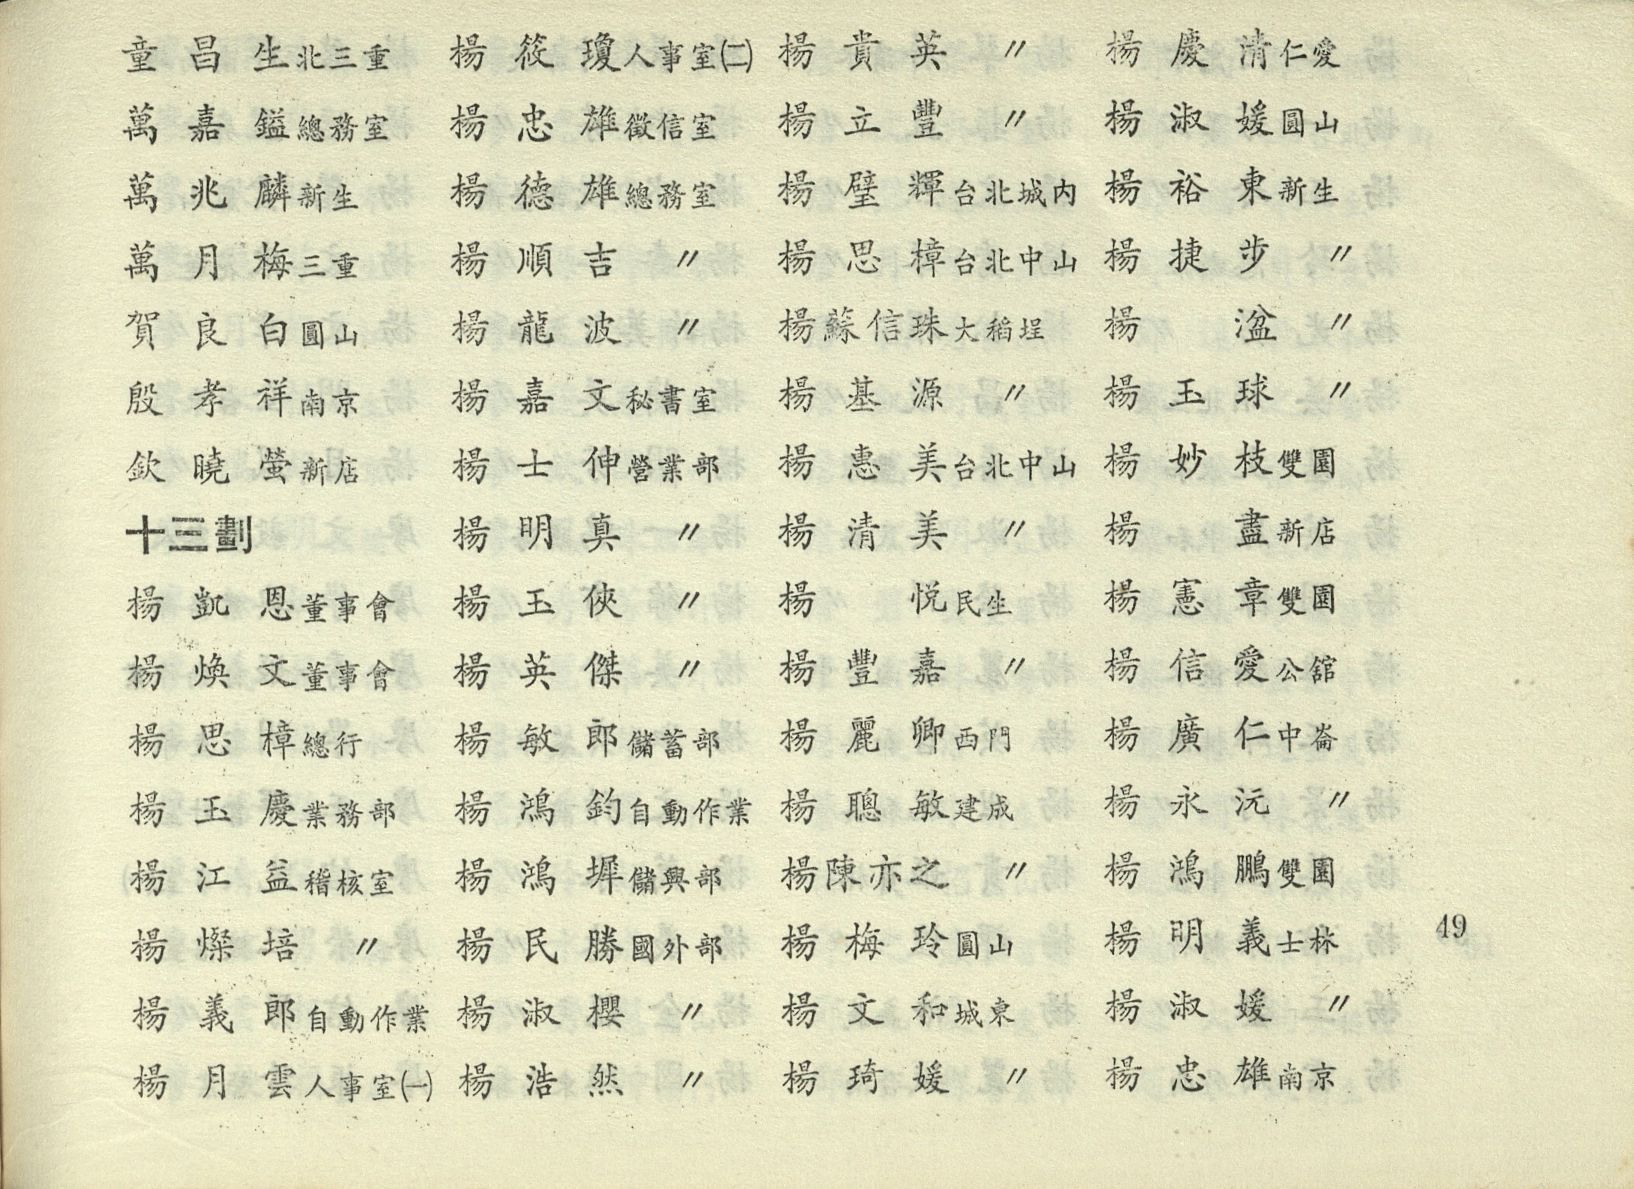 童昌生北三重
萬嘉鎰總務室
萬兆麟新生
萬月梅三重
賀良白圓山
殷孝祥南京
欽曉螢新店
十三劃
楊凱恩董事會
楊煥文董事會
楊思樟總行
楊玉慶業務部
楊江益稽核室
楊燦培〃
楊義郎自動作業
楊月雲人事室㈠
楊筱瓊人事室㈡
楊忠雄徵信室
楊德雄總務室
楊順吉〃
楊龍波〃
楊嘉文秘書室
楊士伸營業部
楊明真〃
楊玉俠〃
楊英傑〃
楊敏郎儲蓄部
楊鴻鈞自動作業
楊鴻墀儲興部
楊民勝國外部
楊淑櫻〃
楊浩然〃
楊貴英〃
楊立豐〃
楊璧輝台北城内
楊思樟台北中山
楊蘇信珠大稻埕
楊基源〃
楊惠美台北中山
楊清美〃
楊悦民生
楊豐嘉〃
楊麗卿西門
楊聰敏建成
楊陳亦之〃
楊梅玲圓山
楊文和城東
楊琦媛〃
楊慶清仁愛
楊淑媛圓山
楊裕東新生
楊捷步〃
楊湓〃
楊玉球〃
楊妙枝雙園
楊盡新店
楊憲章雙園
楊信愛公舘
楊廣仁中崙
楊永沅〃
楊鴻鵬雙園
楊明義士林
楊淑媛〃
楊忠雄南京
49